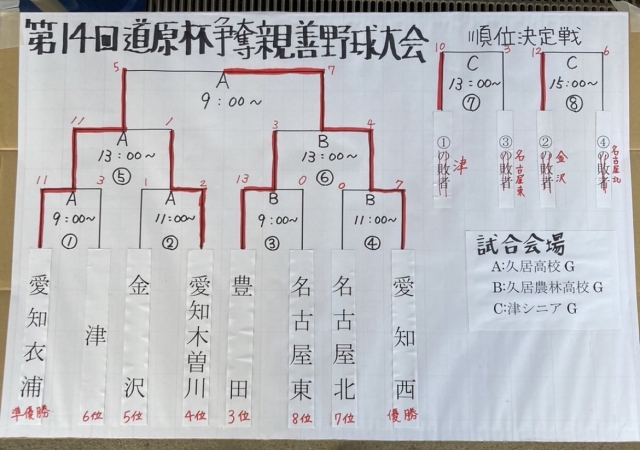 第14回道原杯争奪親善野球大会
順位決定戦
5 A 7
9:00~
10 C 3
13:00~
⑦
12 C 6
15:00~
⑧
①の敗者 津
③の敗者 名古屋東
②の敗者 金沢
④の敗者 名古屋北
11 A 1
13:00~
⑤
3 B 4
13:00~
⑥
11 A 3
9:00~
①
1 A 2
11:00~
②
13 B 0
9:00~
③
0 B 7
11:00~
④
愛知衣浦
津
金沢
愛知木曽川
豊田
名古屋東
名古屋北
愛知西
準優勝
6位
5位
4位
3位
8位
7位
優勝
試合会場
A:久居高校G
B:久居農林高校G
C:津シニアG